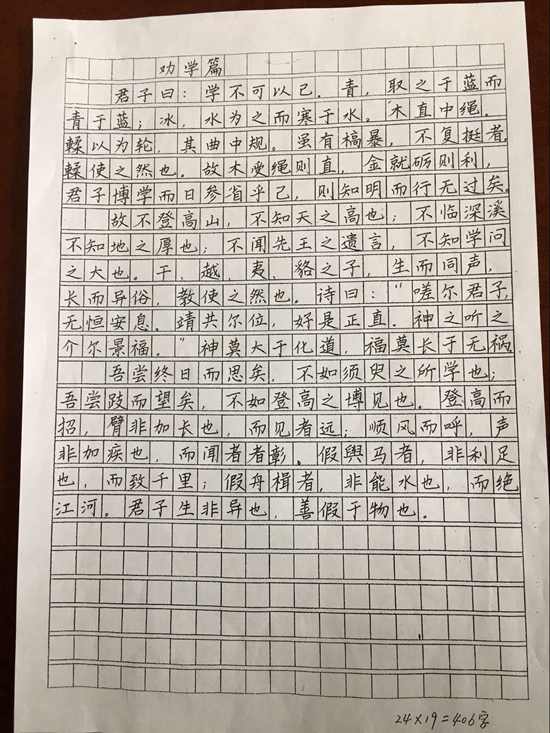 劝学篇
君子曰：学不可以已。青，取之于蓝而
青于蓝；冰，水为之而寒于水。木直中绳。
輮以为轮，其曲中规。虽有槁暴，不复挺者，
輮使之然也。故木受绳则直，金就砺则利，
君子博学而日参省乎己，则知明而行无过矣。
故不登高山，不知天之高也；不临深溪
不知地之厚也；不闻先王之遗言，不知学问
之大也。干、越、夷、貉之子，生而同声，
长而异俗，教使之然也。诗曰：“嗟尔君子，
无恒安息。靖共尔位，好是正直。神之听之
介尔景福。”神莫大于化道，福莫长于无祸。
吾尝终日而思矣，不如须臾之所学也；
吾尝跂而望矣，不如登高之博见也。登高而
招，臂非加长也，而见者远；顺风而呼，声
非加疾也，而闻者者彰。假舆马者，非利足
也，而致千里；假舟楫者，非能水也，而绝
江河。君子生非异也，善假于物也。
24×19=406字